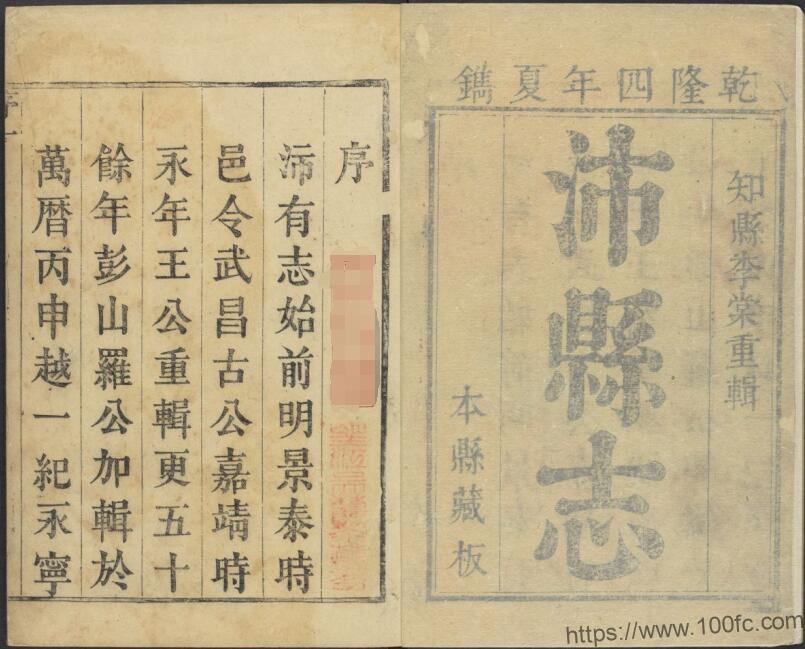 乾隆四年夏鐫
知縣李棠重輯
沛縣志
本縣藏板
序
沛有志始前明景泰時
邑令武昌古公嘉靖時
永年王公重輯更五十
餘年彭山羅公加輯於
萬曆丙申越一紀永寧
https://www.100fc.com